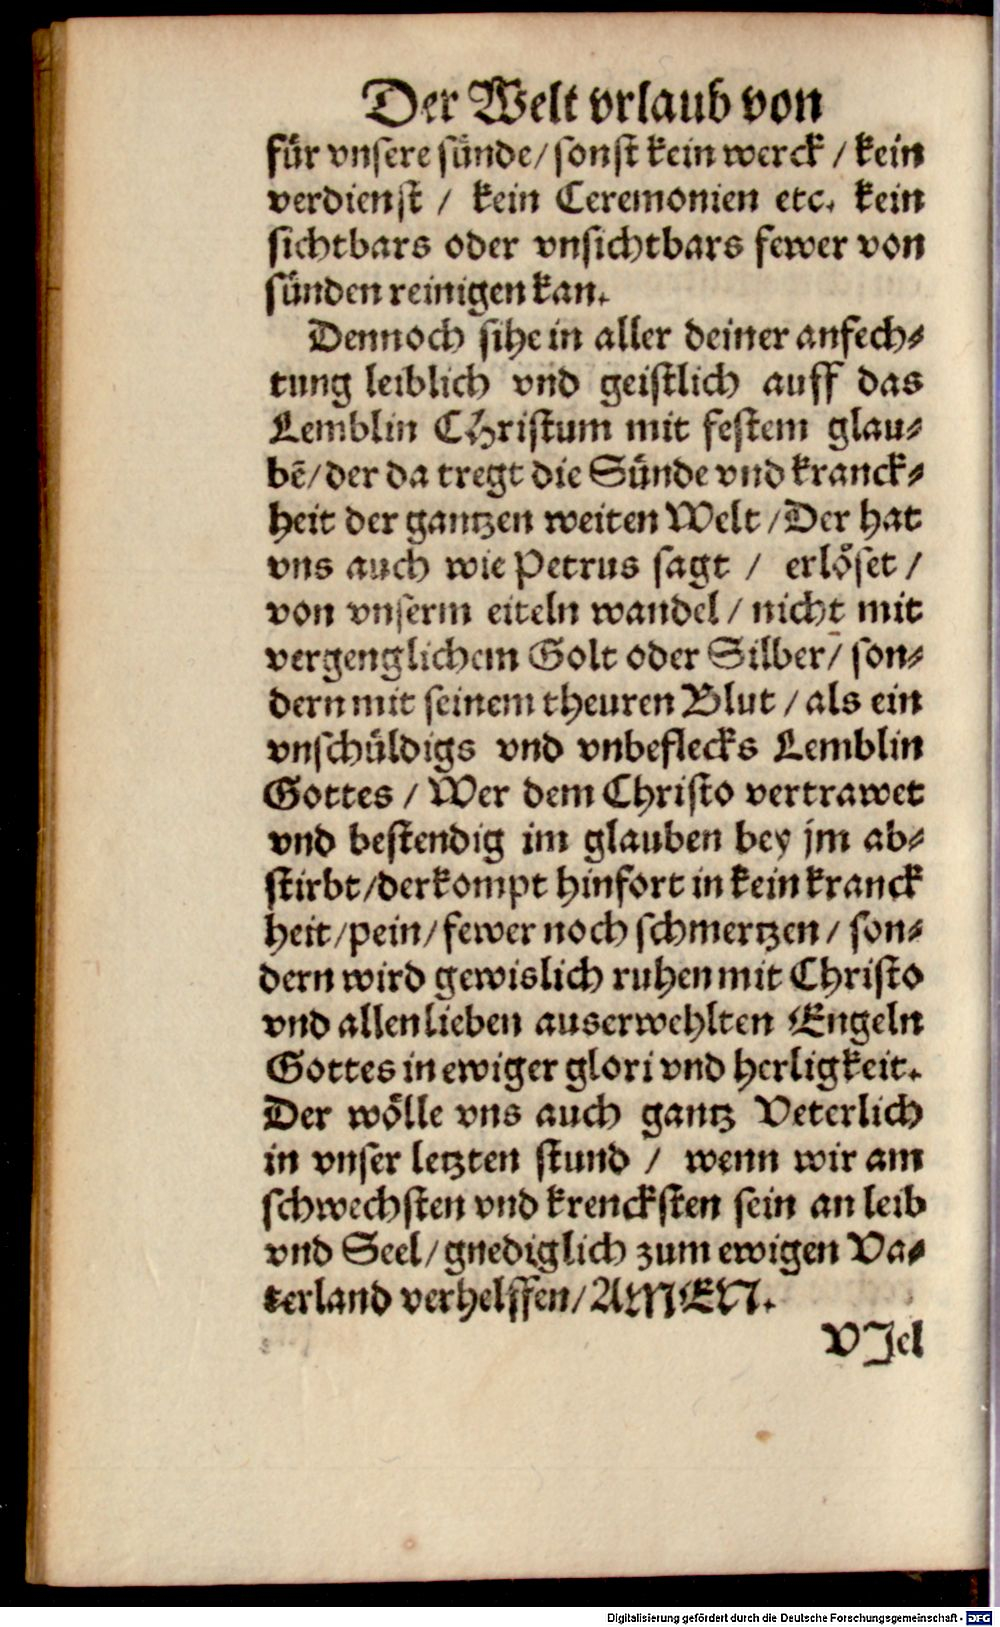 Der Welt vrlaub von
für vnsere sünde/ sonst kein werck / kein
verdienst / kein Ceremonien etc. kein
sichtbars oder vnsichtbars fewer von
sünden reinigen kan.
Dennoch sihe in aller deiner anfech⸗
tung leiblich vnd geistlich auff das
Lemblin CHristum mit festem glau⸗
bẽ/ der da tregt die Sünde vnd kranck⸗
heit der gantzen weiten Welt / Der hat
vns auch wie Petrus sagt / erlöset /
von vnserm eiteln wandel / nicht mit
vergenglichem Golt oder Silber/ son⸗
dern mit seinem theuren Blut / als ein
vnschüldigs vnd vnbeflecks Lemblin
Gottes / Wer dem Christo vertrawet
vnd bestendig im glauben bey jm ab⸗
stirbt/der kompt hinfort in kein kranck
heit/pein/ fewer noch schmertzen/ son⸗
dern wird gewislich ruhen mit Christo
vnd allen lieben auserwehlten Engeln
Gottes in ewiger glori vnd herligkeit.
Der wölle vns auch gantz Veterlich
in vnser letzten stund / wenn wir am
schwechsten vnd krencksten sein an leib
vnd Seel/ gnediglich zum ewigen Va⸗
terland verhelffen/ AMEN.
VJel
Digitalisierung gefördert durch die Deutsche Forschungsgemeinschaft - DFG